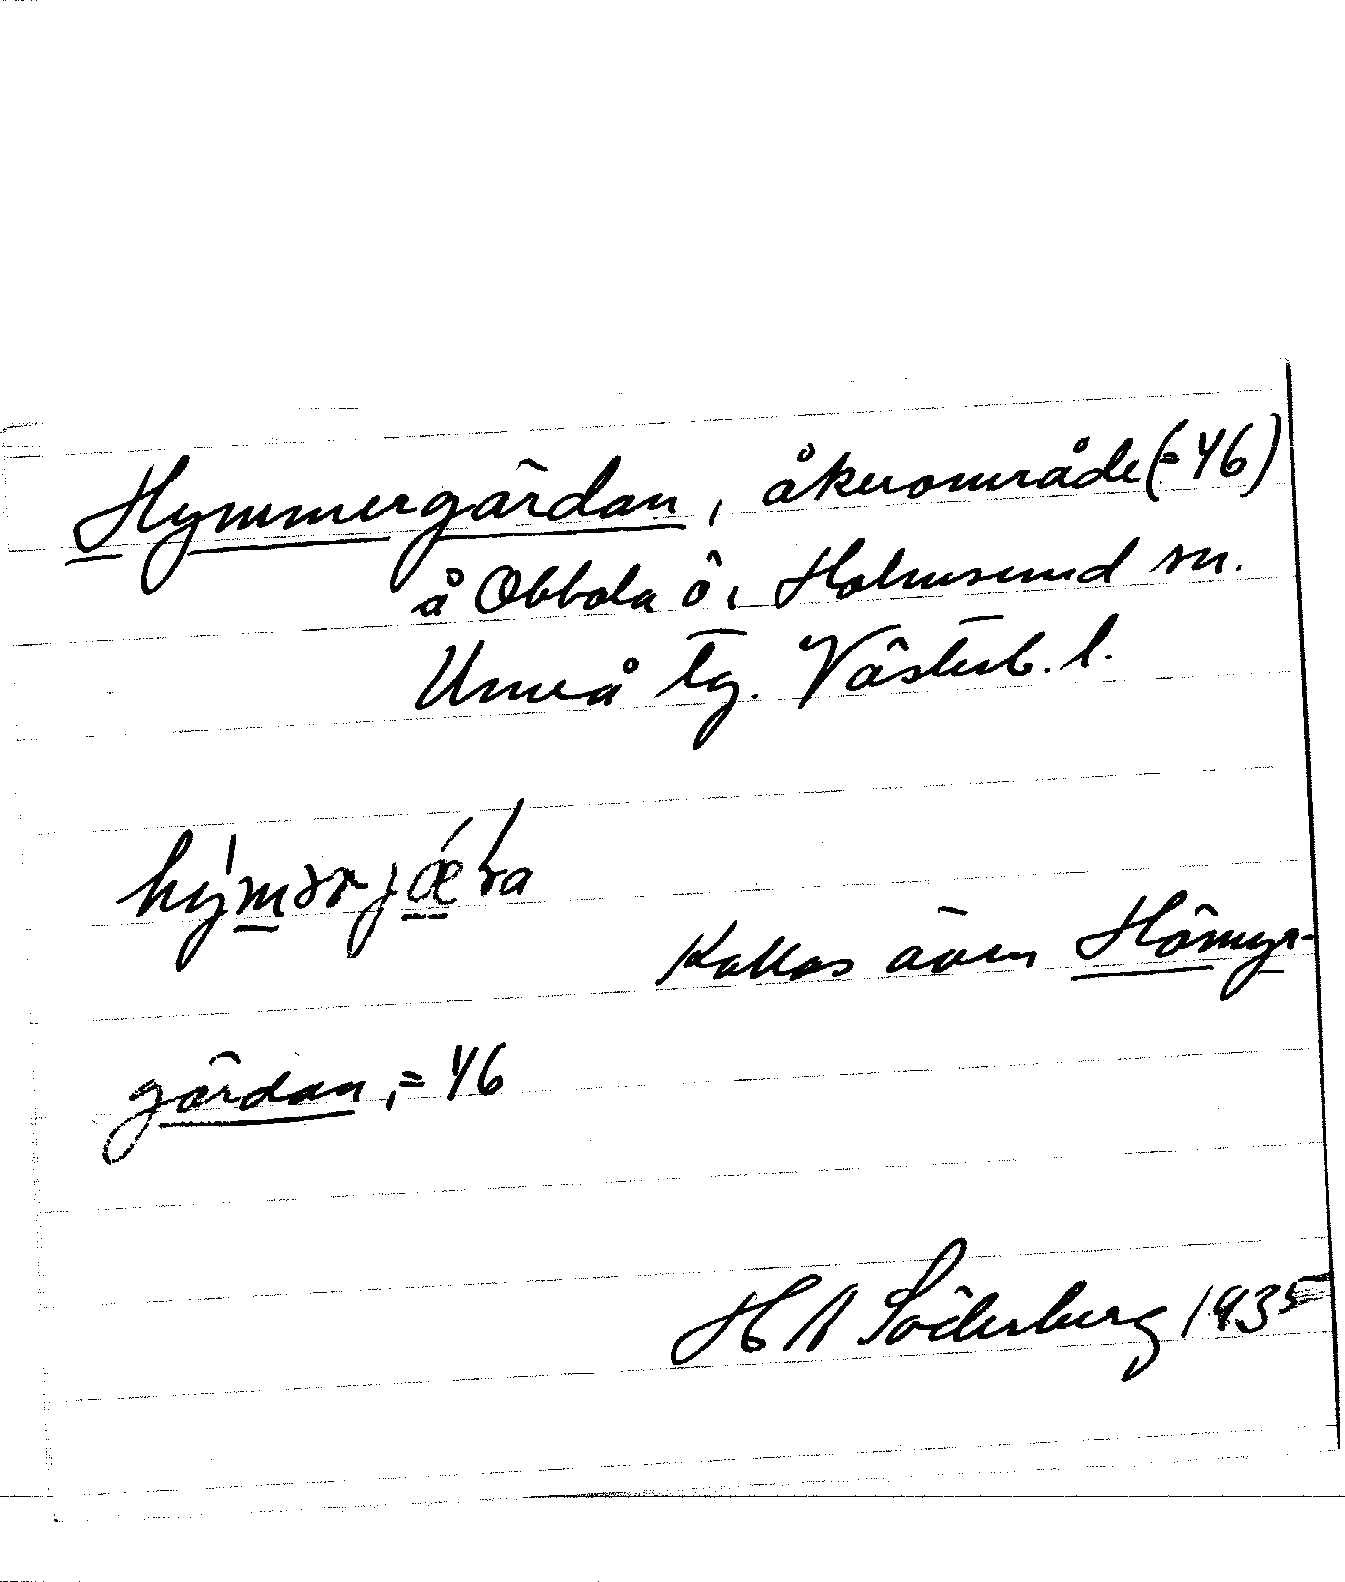 Hymmergärdan, åkerområde (=46)
å Obbola ö, Holmsund sn.
Umeå tg. Västerb. l.
Kallas även Hömyr-
gärdan, =46
H A Söderberg 1935